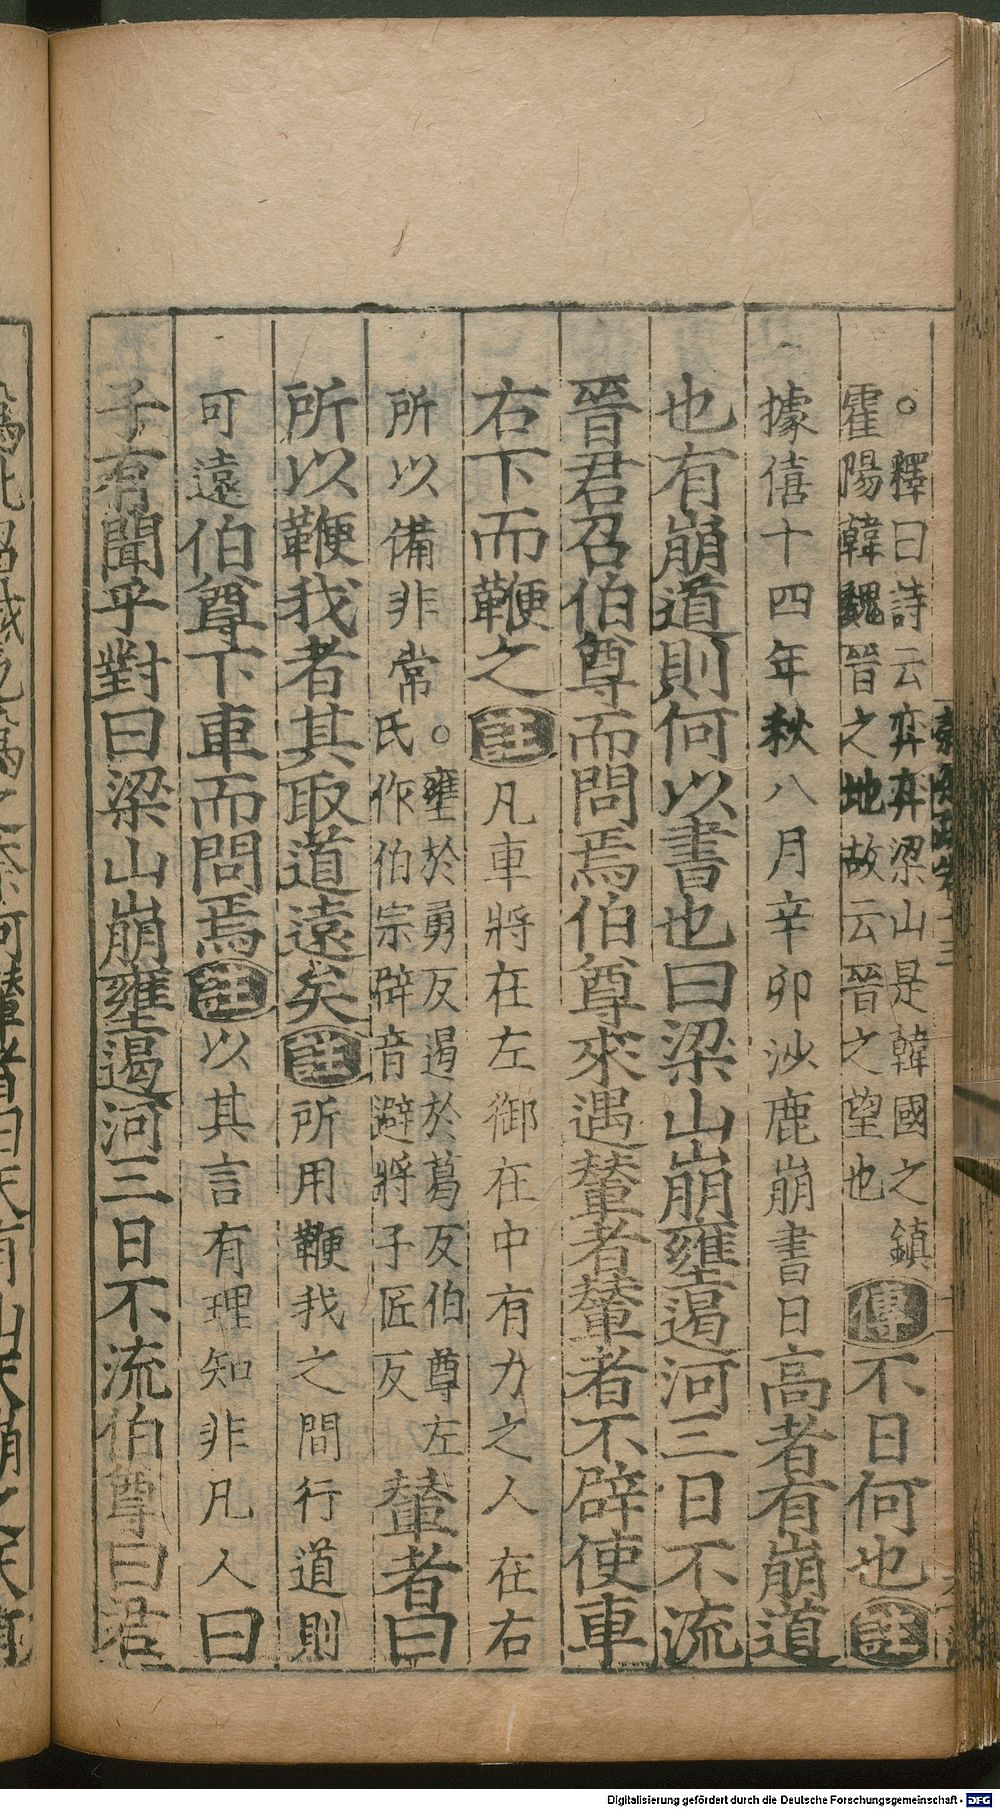 。釋曰詩云弈弈梁山是韓國之鎮
霍陽韓魏晉之地故云晉之望也
傳不日何也註
據僖十四年秋八月辛卯沙鹿崩書日高者有崩道
也有崩道則何以書也曰梁山崩壅遏河三日不流
晉君召伯尊而問焉伯尊來遇輦者輦者不辟使車
右下而鞭之註凡車將在左御在中有力之人在右
所以備非常。壅於勇反遏於葛反伯尊左
氏作伯宗辟音避將子匠反
輦者曰
所以鞭我者其取道遠矣註所用鞭我之間行道則
可遠伯尊下車而問焉註以其言有理知非凡人曰
子有聞乎對曰梁山崩壅遏河三日不流伯尊曰君
Digitalisierung gefördert durch die Deutsche Forschungsgemeinschaft - DFG